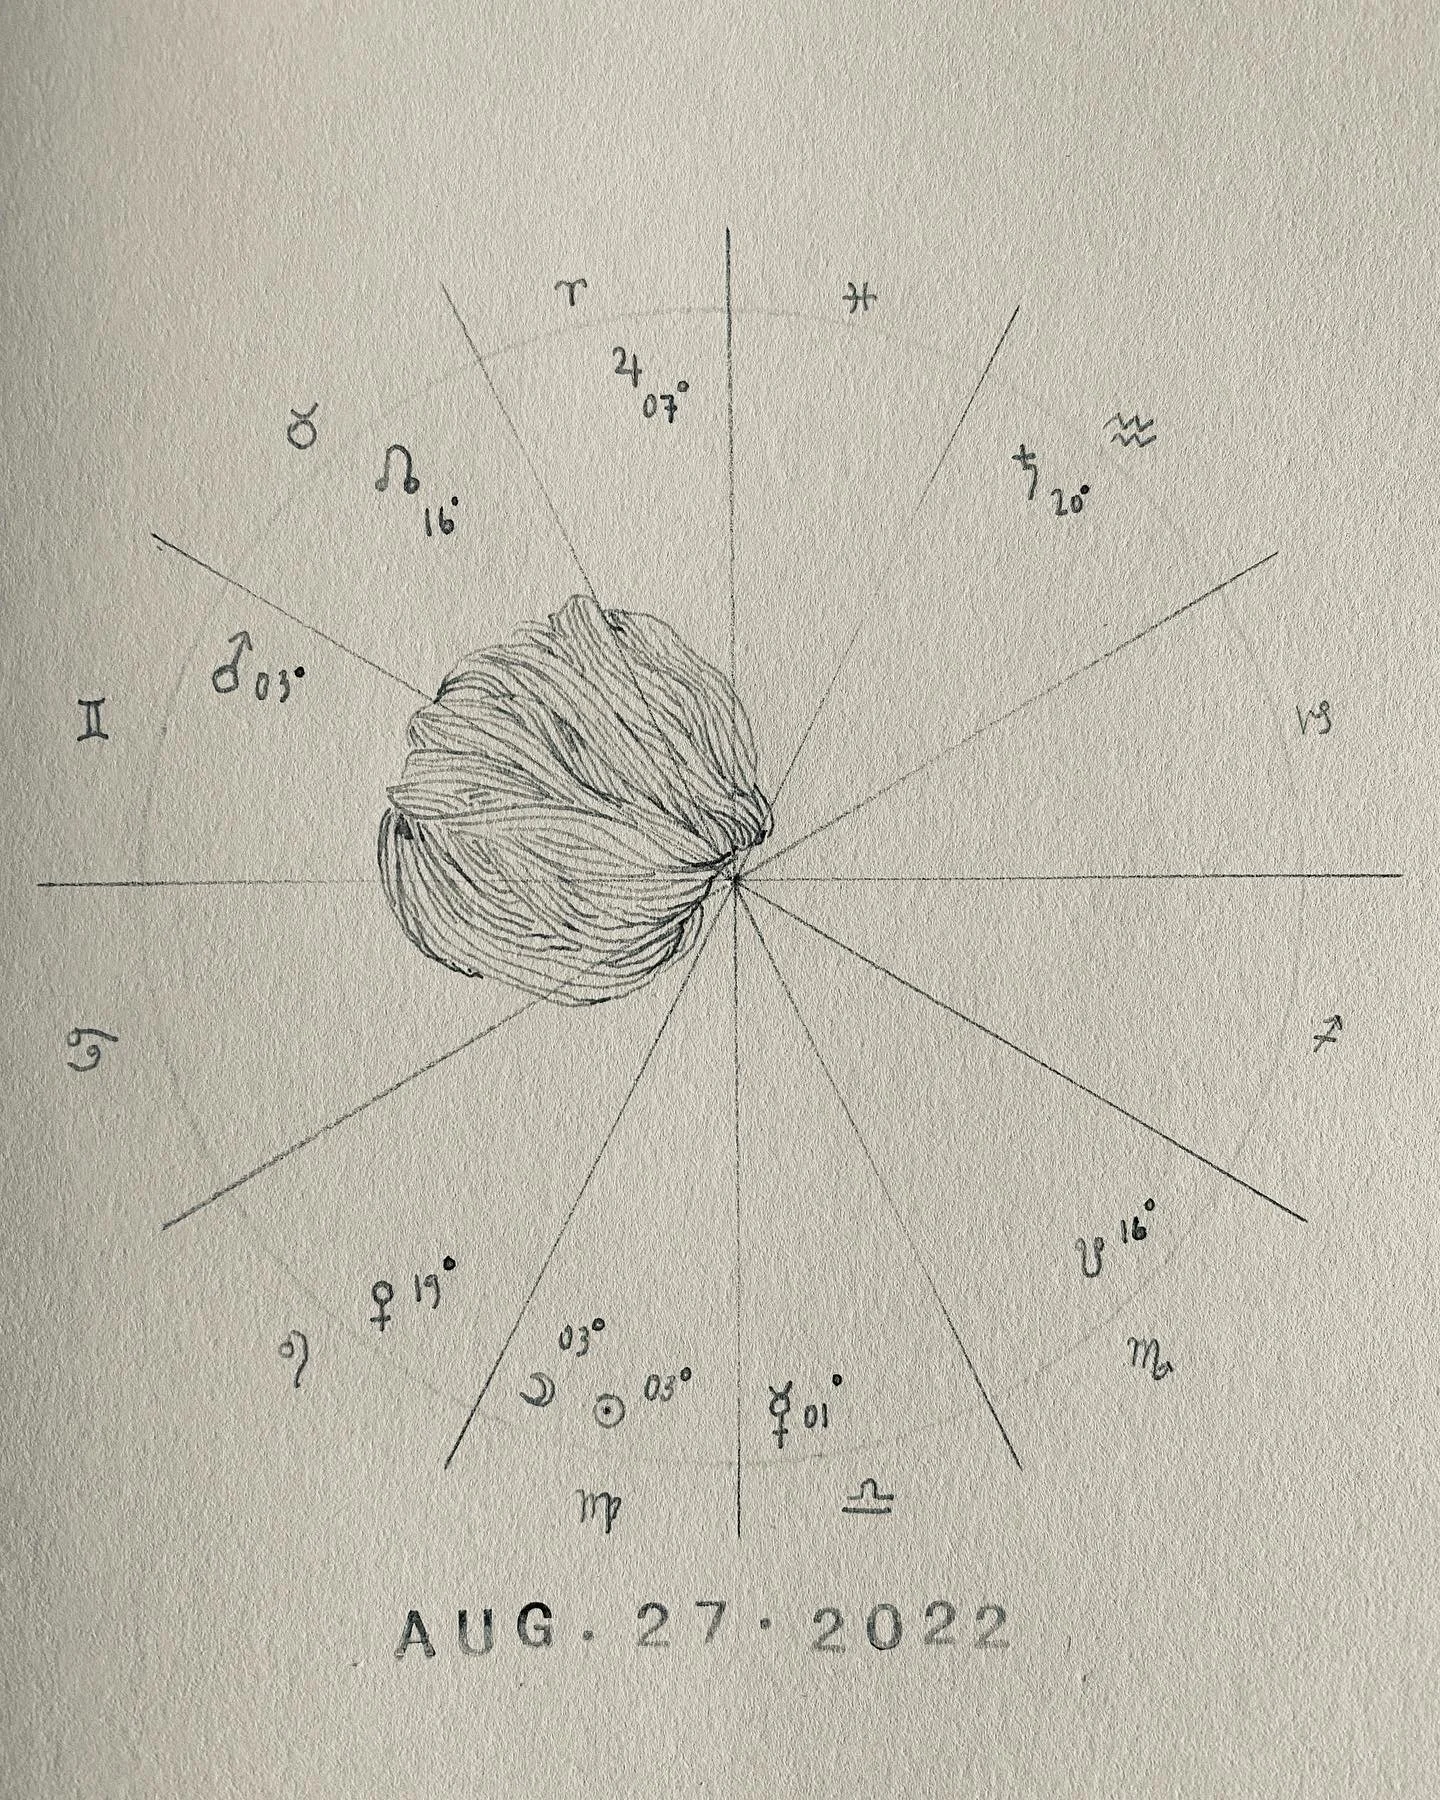 ♈ ♓
♃ 07°
♉ ♒
☊ 16° ♄ 20°
♂ 03°
♊ ♑
♋ ♐
☋ 16°
♀ 19°
♌ ♏
03°
☽ ☉ 03° ☿ 01°
♍ ♎
AUG. 27. 2022